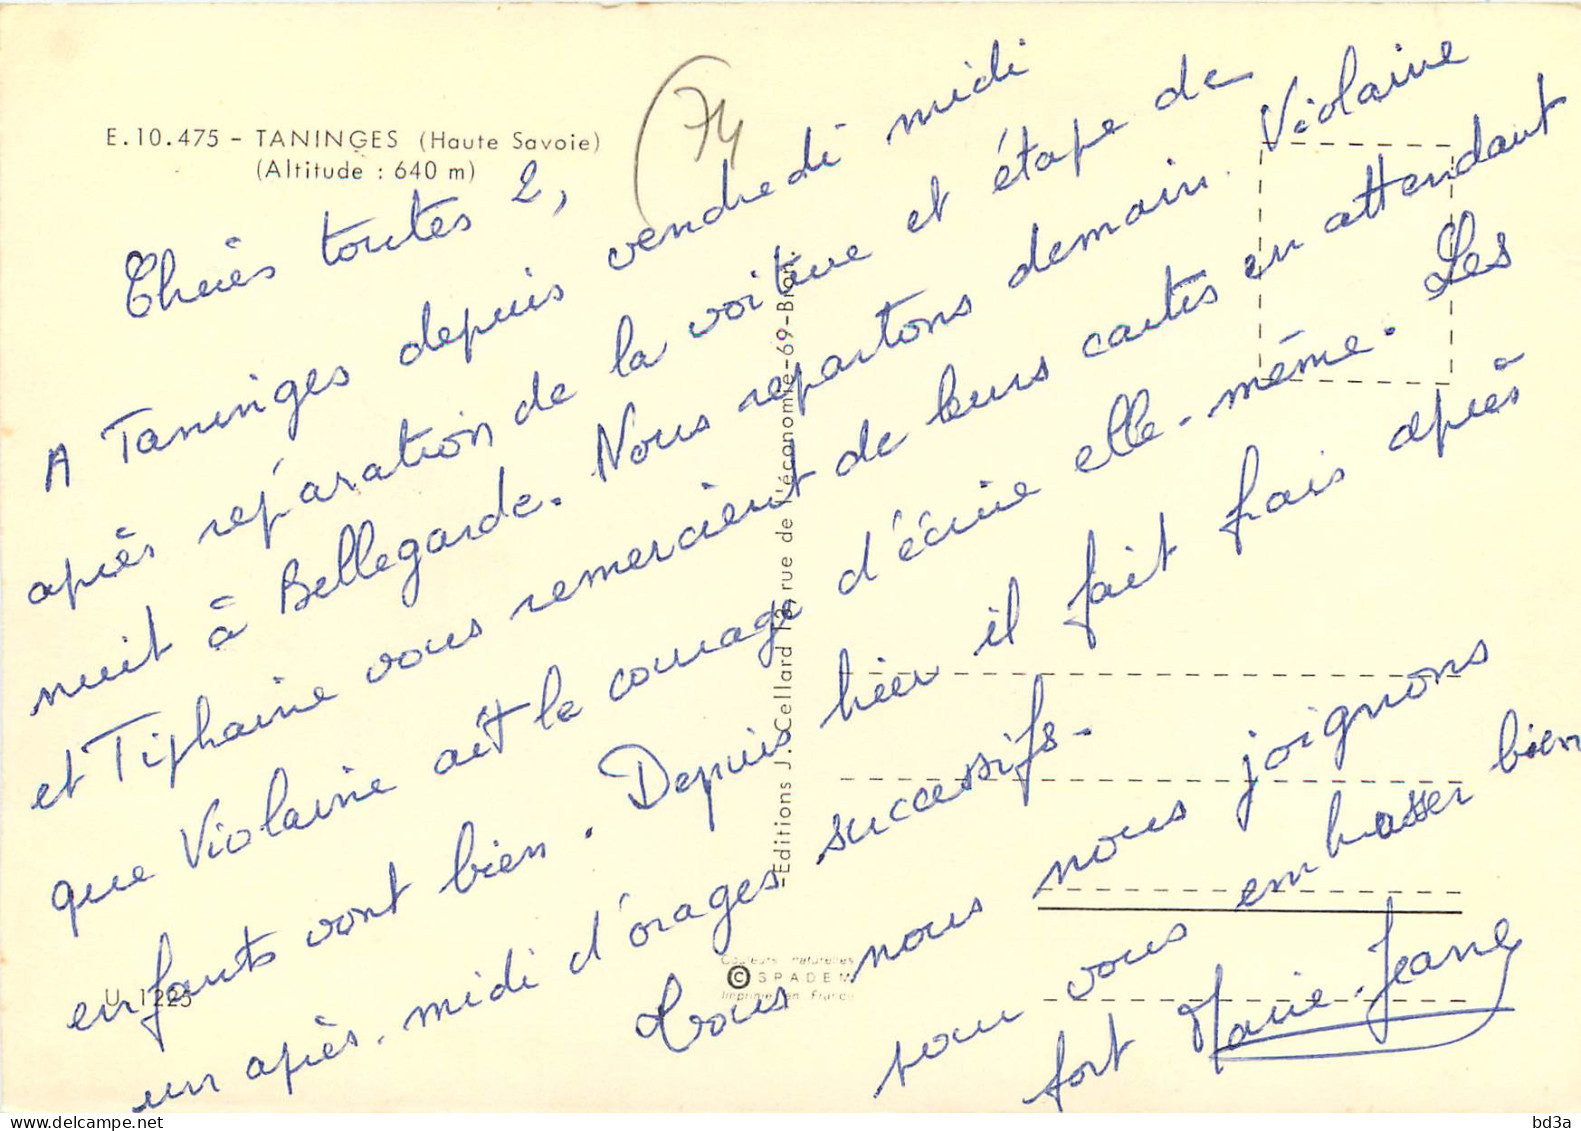 E.10.475 - TANINGES (Haute Savoie)
(Altitude : 640 m)
74
Chères toutes 2,
A Taninges depuis vendredi midi
après réparation de la voiture et étape de
nuit à Bellegarde. Nous repartons demain. Violaine
et Tiphaine vous remercient de leurs cartes en attendant
que Violaine ait le courage d'écrire elle-même. Les
enfants vont bien. Depuis hier il fait frais après
un après-midi d'orages successifs.
Tous nous nous joignons
pour vous embrasser bien
fort Marie-Jeanne
-Editions J. Cellard 13, rue de l'économie-69-Bron.
U 1225
Couleurs naturelles
© SPADEM
Imprimé en France
bd3a